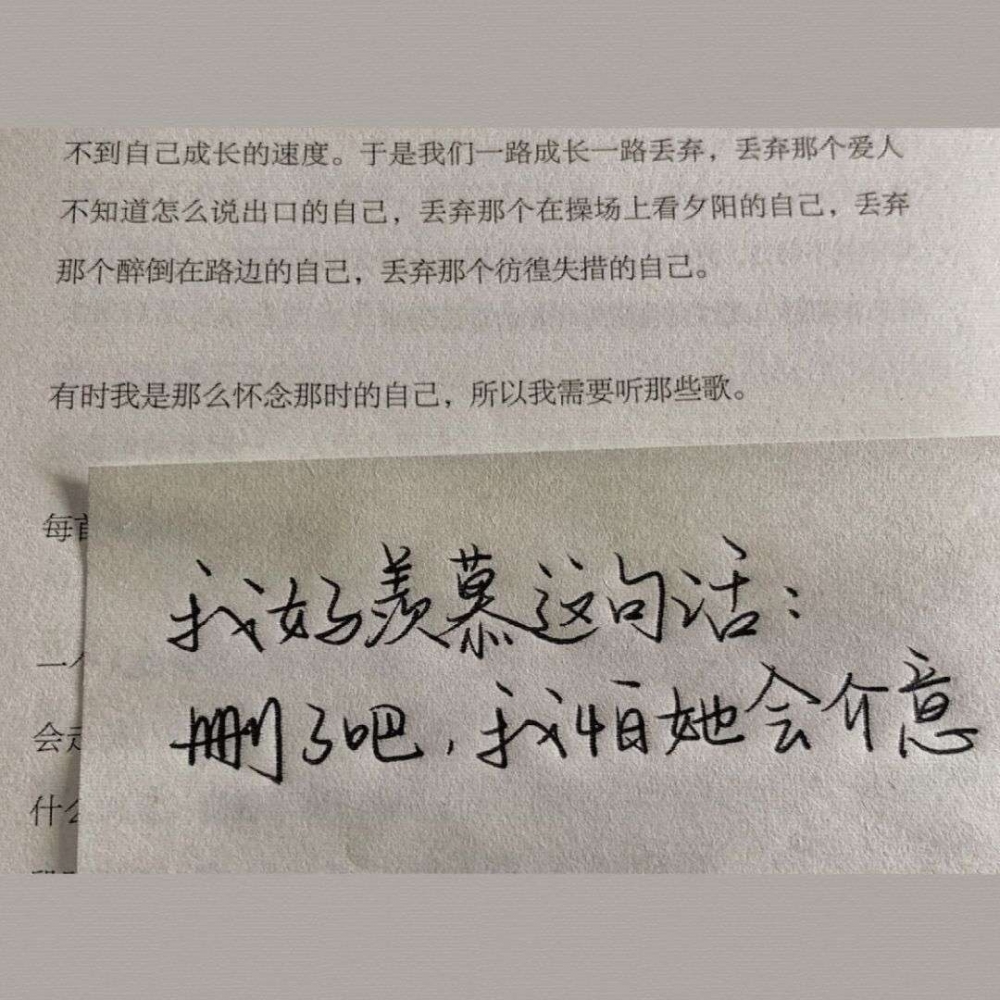 不到自己成长的速度。于是我们一路成长一路丢弃，丢弃那个爱人
不知道怎么说出口的自己，丢弃那个在操场上看夕阳的自己，丢弃
那个醉倒在路边的自己，丢弃那个彷徨失措的自己。
有时我是那么怀念那时的自己，所以我需要听那些歌。
每首
我好羡慕这句话：
一个
会走
删了吧，我怕她会介意
什么